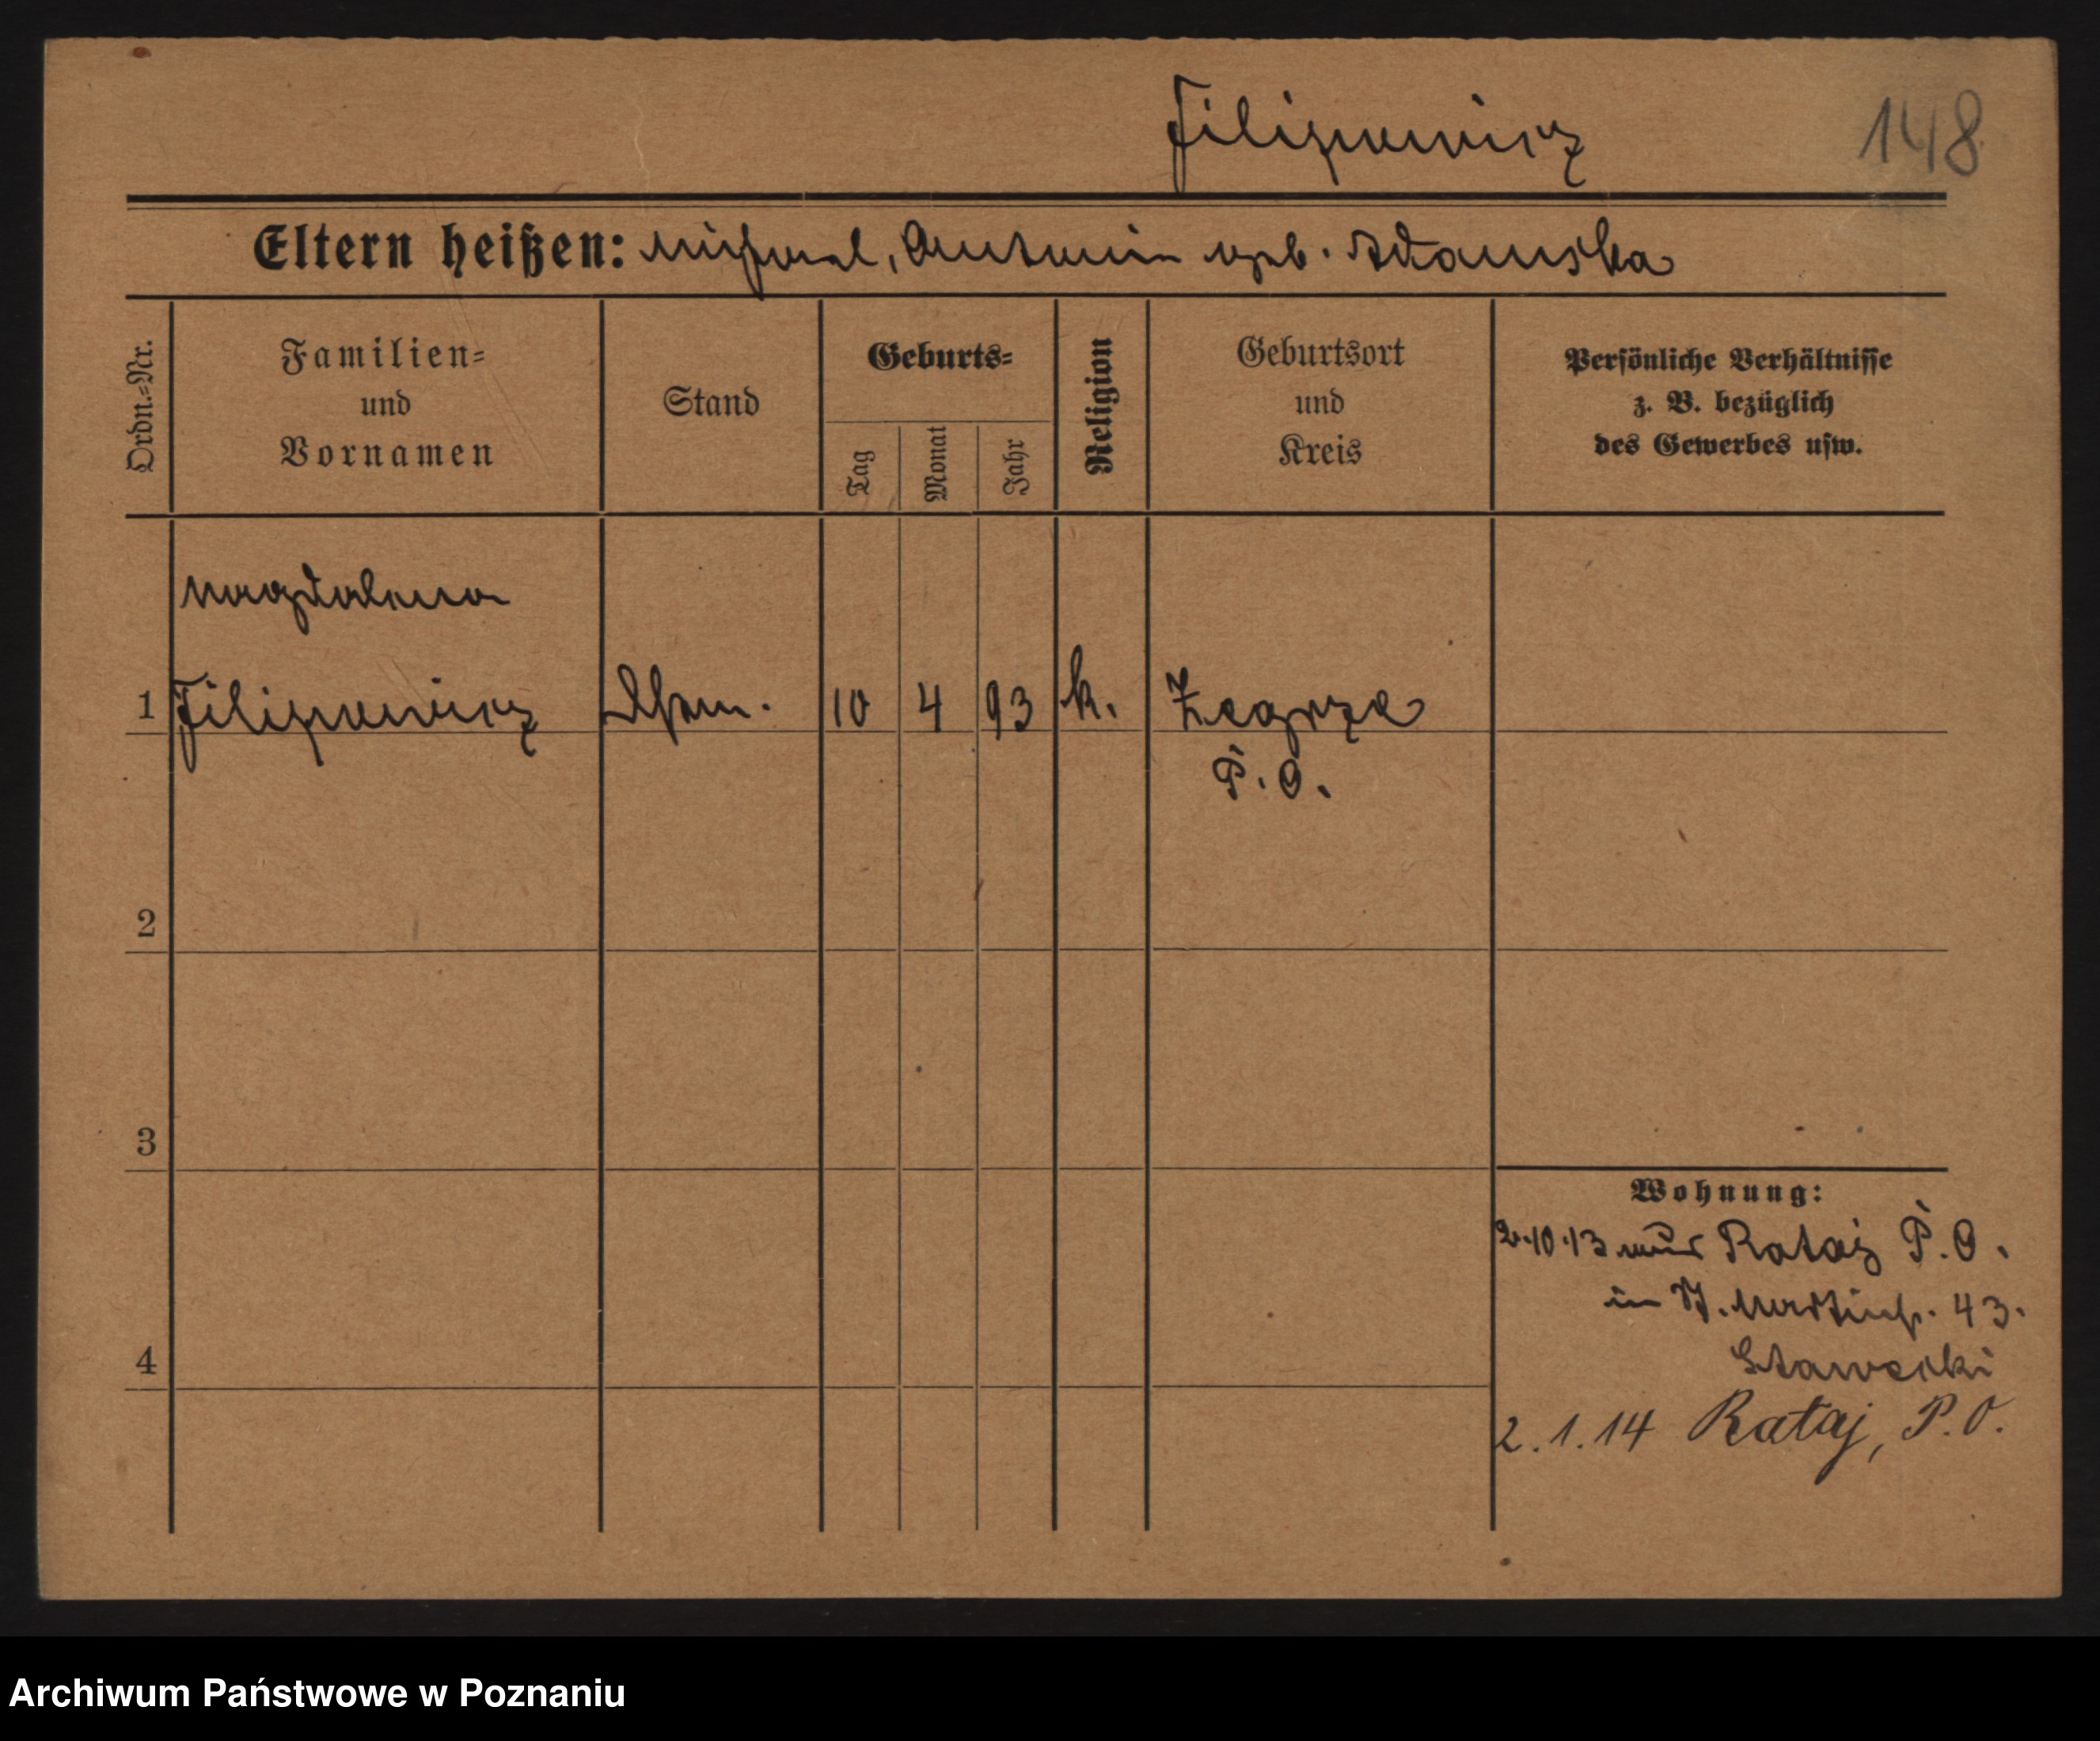 Filipowicz 148
Eltern heißen: Michael, Antonie geb. Adamska
Ordn.=Nr.
Familien=
und
Vornamen
Stand
Geburts=
Tag
Monat
Jahr
Religion
Geburtsort
und
Kreis
Persönliche Verhältnisse
z. B. bezüglich
des Gewerbes usw.
Magdalena
1 Filipowicz 10 4 93 k. Zegrze
P. O.
2
3
4
Wohnung:
2.10.13 aus Rataj P. O.
in St. Martinstr. 43.
Stawecki
2.1.14 Rataj, P. O.
Archiwum Państwowe w Poznaniu